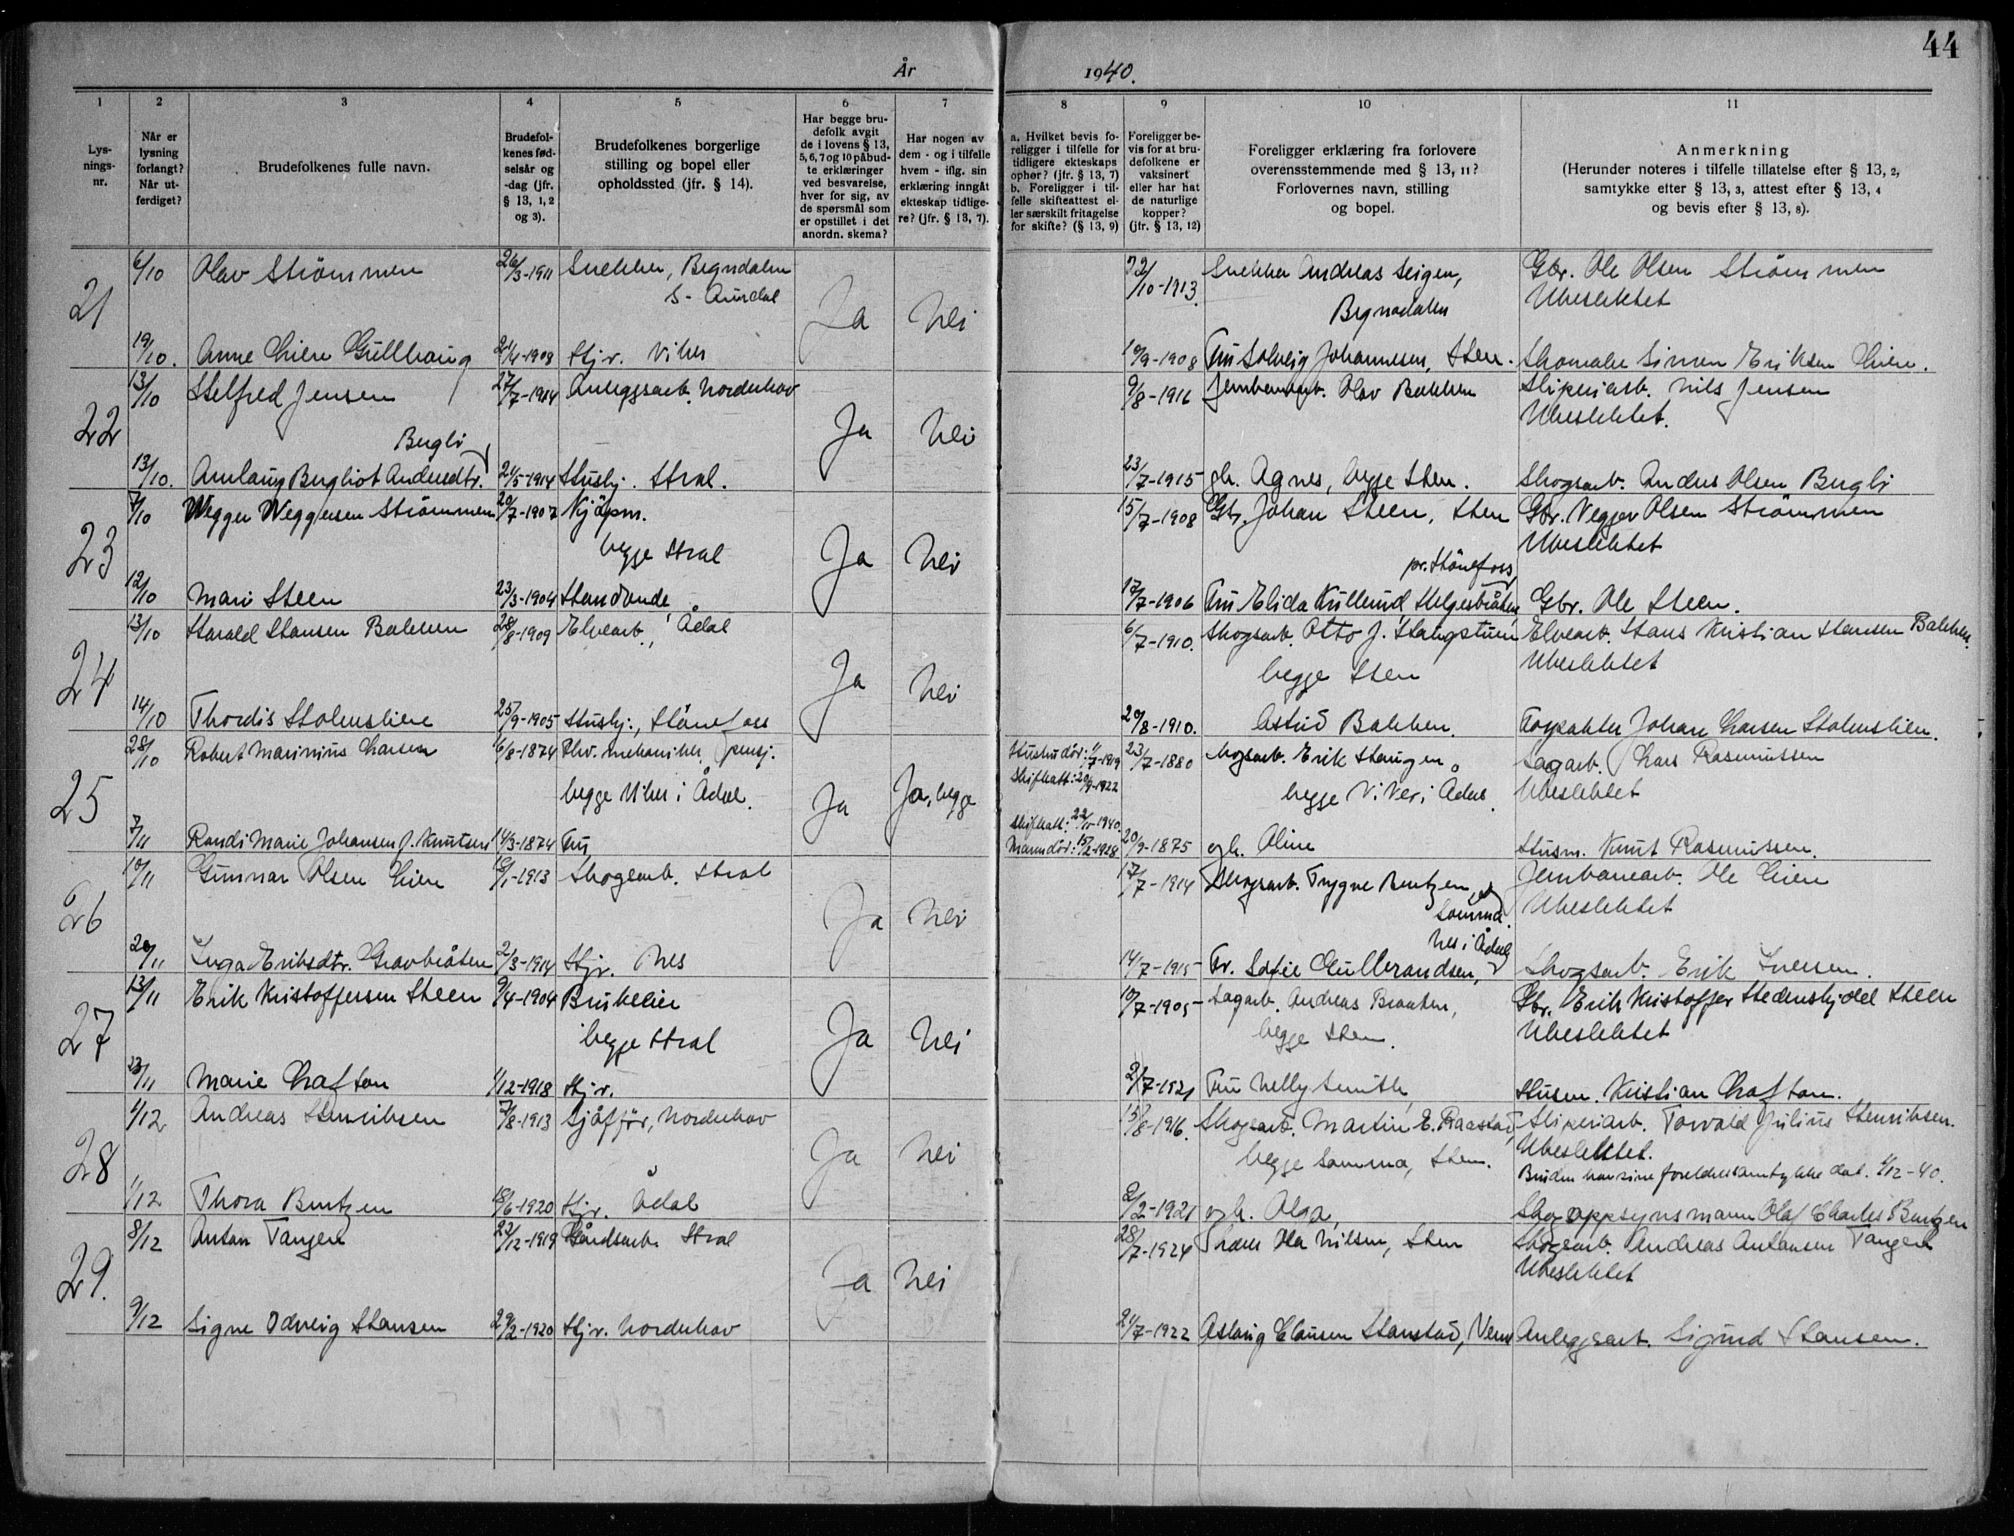 44
År
1940.
1
2
3
4
5
6
7
8
9
10
11
Lys-
nings-
nr.
Når er
lysning
forlangt?
Når ut-
ferdiget?
Brudefolkenes fulle navn.
Brudefol-
kenes fød-
selsår og
-dag (jfr.
§ 13, 1, 2
og 3).
Brudefolkenes borgerlige
stilling og bopel eller
opholdssted (jfr. § 14).
Har begge bru-
defolk avgit
de i lovens § 13,
5, 6, 7 og 10 påbud-
te erklæringer
ved besvarelse,
hver for sig, av
de spørsmål som
er opstillet i det
anordn. skema?
Har nogen av
dem - og i tilfelle
hvem - iflg. sin
erklæring inngåt
ekteskap tidlige-
re? (jfr. § 13, 7).
a. Hvilket bevis fo-
religger i tilfelle for
tidligere ekteskaps
ophør? (jfr. § 13, 7)
b. Foreligger i til-
felle skifteattest el-
ler særskilt fritagelse
for skifte? (§ 13, 9)
Foreligger be-
vis for at bru-
defolkene er
vaksinert
eller har hat
de naturlige
kopper?
(jfr. § 13, 12)
Foreligger erklæring fra forlovere
overensstemmende med § 13, 11?
Forlovernes navn, stilling
og bopel.
Anmerkning
(Herunder noteres i tilfelle tillatelse efter § 13, 2,
samtykke efter § 13, 3, attest efter § 13, 4
og bevis efter § 13, 8).
21
6/10 Olav Strömmen 26/3-1911 Snekker, Begndalen
S- Aurdal
Ja Nei
/10-1913. Snekker Andreas Leigen,
Begnadalen
Gbr. Ole Olsen Strömmen
Ubeslektet
19/10. Anne Lien Gullhaug 21/4-1908 Hjv. Viker
10/9-1908 Fru Solveig Johannesen, Sten. Skomaker Simen Eriksen Lien.
22
13/10 Helfred Jensen 27/7-1914 Anleggsarb. Norderhov
Ja Nei
9/8-1916 Jernbanearb. Olav Bakken Sliperiarb. Nils Jensen
Ubeslektet.
Bergli
13/10. Aaslaug Bergliot Andersdtr. 21/5-1914 Hushj. Hval.
23/7-1915 gh. Agnes, begge Sten. Skogsarb. Anders Olsen Bergli
23
7/10 Vegger Veggersen Strömmen 20/7-1907 Kjöpm.
begge Hval
Ja Nei
15/7-1908 Gbr. Johan Steen, Sten Gbr. Vegger Olsen Strömmen
Ubeslektet
pr. Hönefoss
12/10 Mari Steen 23/3-1904 Handlende
17/7-1906 Fru Elida Kullerud Helgesbråten, Gbr. Ole Steen.
24
13/10 Harald Hansen Bakken 28/8-1909 Elvearb., Ådal
Ja Nei
6/7-1910. Skogsarb. Otto J. Haugstuen Elvearb. Hans Kristian Hansen Bakken.
begge Sten Ubeslektet
14/10 Thordis Holmslien 25/9-1905 Hushj., Hönefoss
20/8-1910. Astrid Bakken. Forpakter Johan Larsen Holmslien.
25
28/10 Robert Marinius Larsen 16/8-1874 Elv. mekaniker, pensj.
begge Viker i Ådal.
Ja Ja, begge
Hustru död: 1/7-1919
Skifteatt: 20/9-1922
23/7-1880 Skogsarb. Erik Haugen,
begge Viker i Ådal.
Sagarb. Lars Rasmussen
Ubeslektet
7/11 Randi Marie Johansen f. Knutsen 14/3-1874 Fru
Skifteatt: 22/11-1940.
Mann död: 15/2-1928
20/9-1875 gh. Aline Husm. Knut Rasmussen.
26
10/11 Gunnar Olsen Lien /1-1913 Skogsarb. Hval
Ja Nei
17/7-1914 Skogsarb. Trygve Bentzen,
Somma
Jernbanearb. Ole Lien
Ubeslektet
Nes i Ådal
20/11 Inga Eriksdtr. Gravbråten 21/3-1914 Hjv. Nes
14/7-1915 Fr. Sofie Gullerandsen, Skogsarb. Erik Iversen.
27
13/11 Erik Kristoffersen Steen 9/4-1904 Brukeier
begge Hval
Ja Nei
10/7-1905 Sagarb. Andreas Braaten,
begge Sten.
Gbr. Erik Kristoffer Hedenskjold Steen
Ubeslektet
23/11 Marie Lafton 1/12-1918 Hjv.
21/7-1921 Fru Nelly Smith, Husm. Kristian Lafton.
28
1/12 Andreas Henriksen 7/8-1913 Sjåför, Norderhov
Ja Nei
15/8-1916. Skogsarb. Martin E. Raastad, Sliperiarb. Torvald Julius Henriksen.
begge Somma, Sten. Ubeslektet.
Bruden har sine foreldres samtykke dat. 1/12-40.
1/12 Thora Bentzen 18/6-1920 Hjv. Ådal
2/2-1921 gh. Olga, Skogoppsynsmann Olaf Charles Bentzen
29.
8/12 Anton Tangen 22/12-1919 Gårdsarb. Hval
Ja Nei
28/7-1924 Ola Nilsen, Sten Skogsarb. Andreas Antonsen Tangen
Ubeslektet
9/12 Signe Odveig Hansen 29/2-1920 Hjv. Norderhov
21/7-1922 Aslaug Clausen Hanstad, Veme Anleggsarb. Sigurd Hansen.